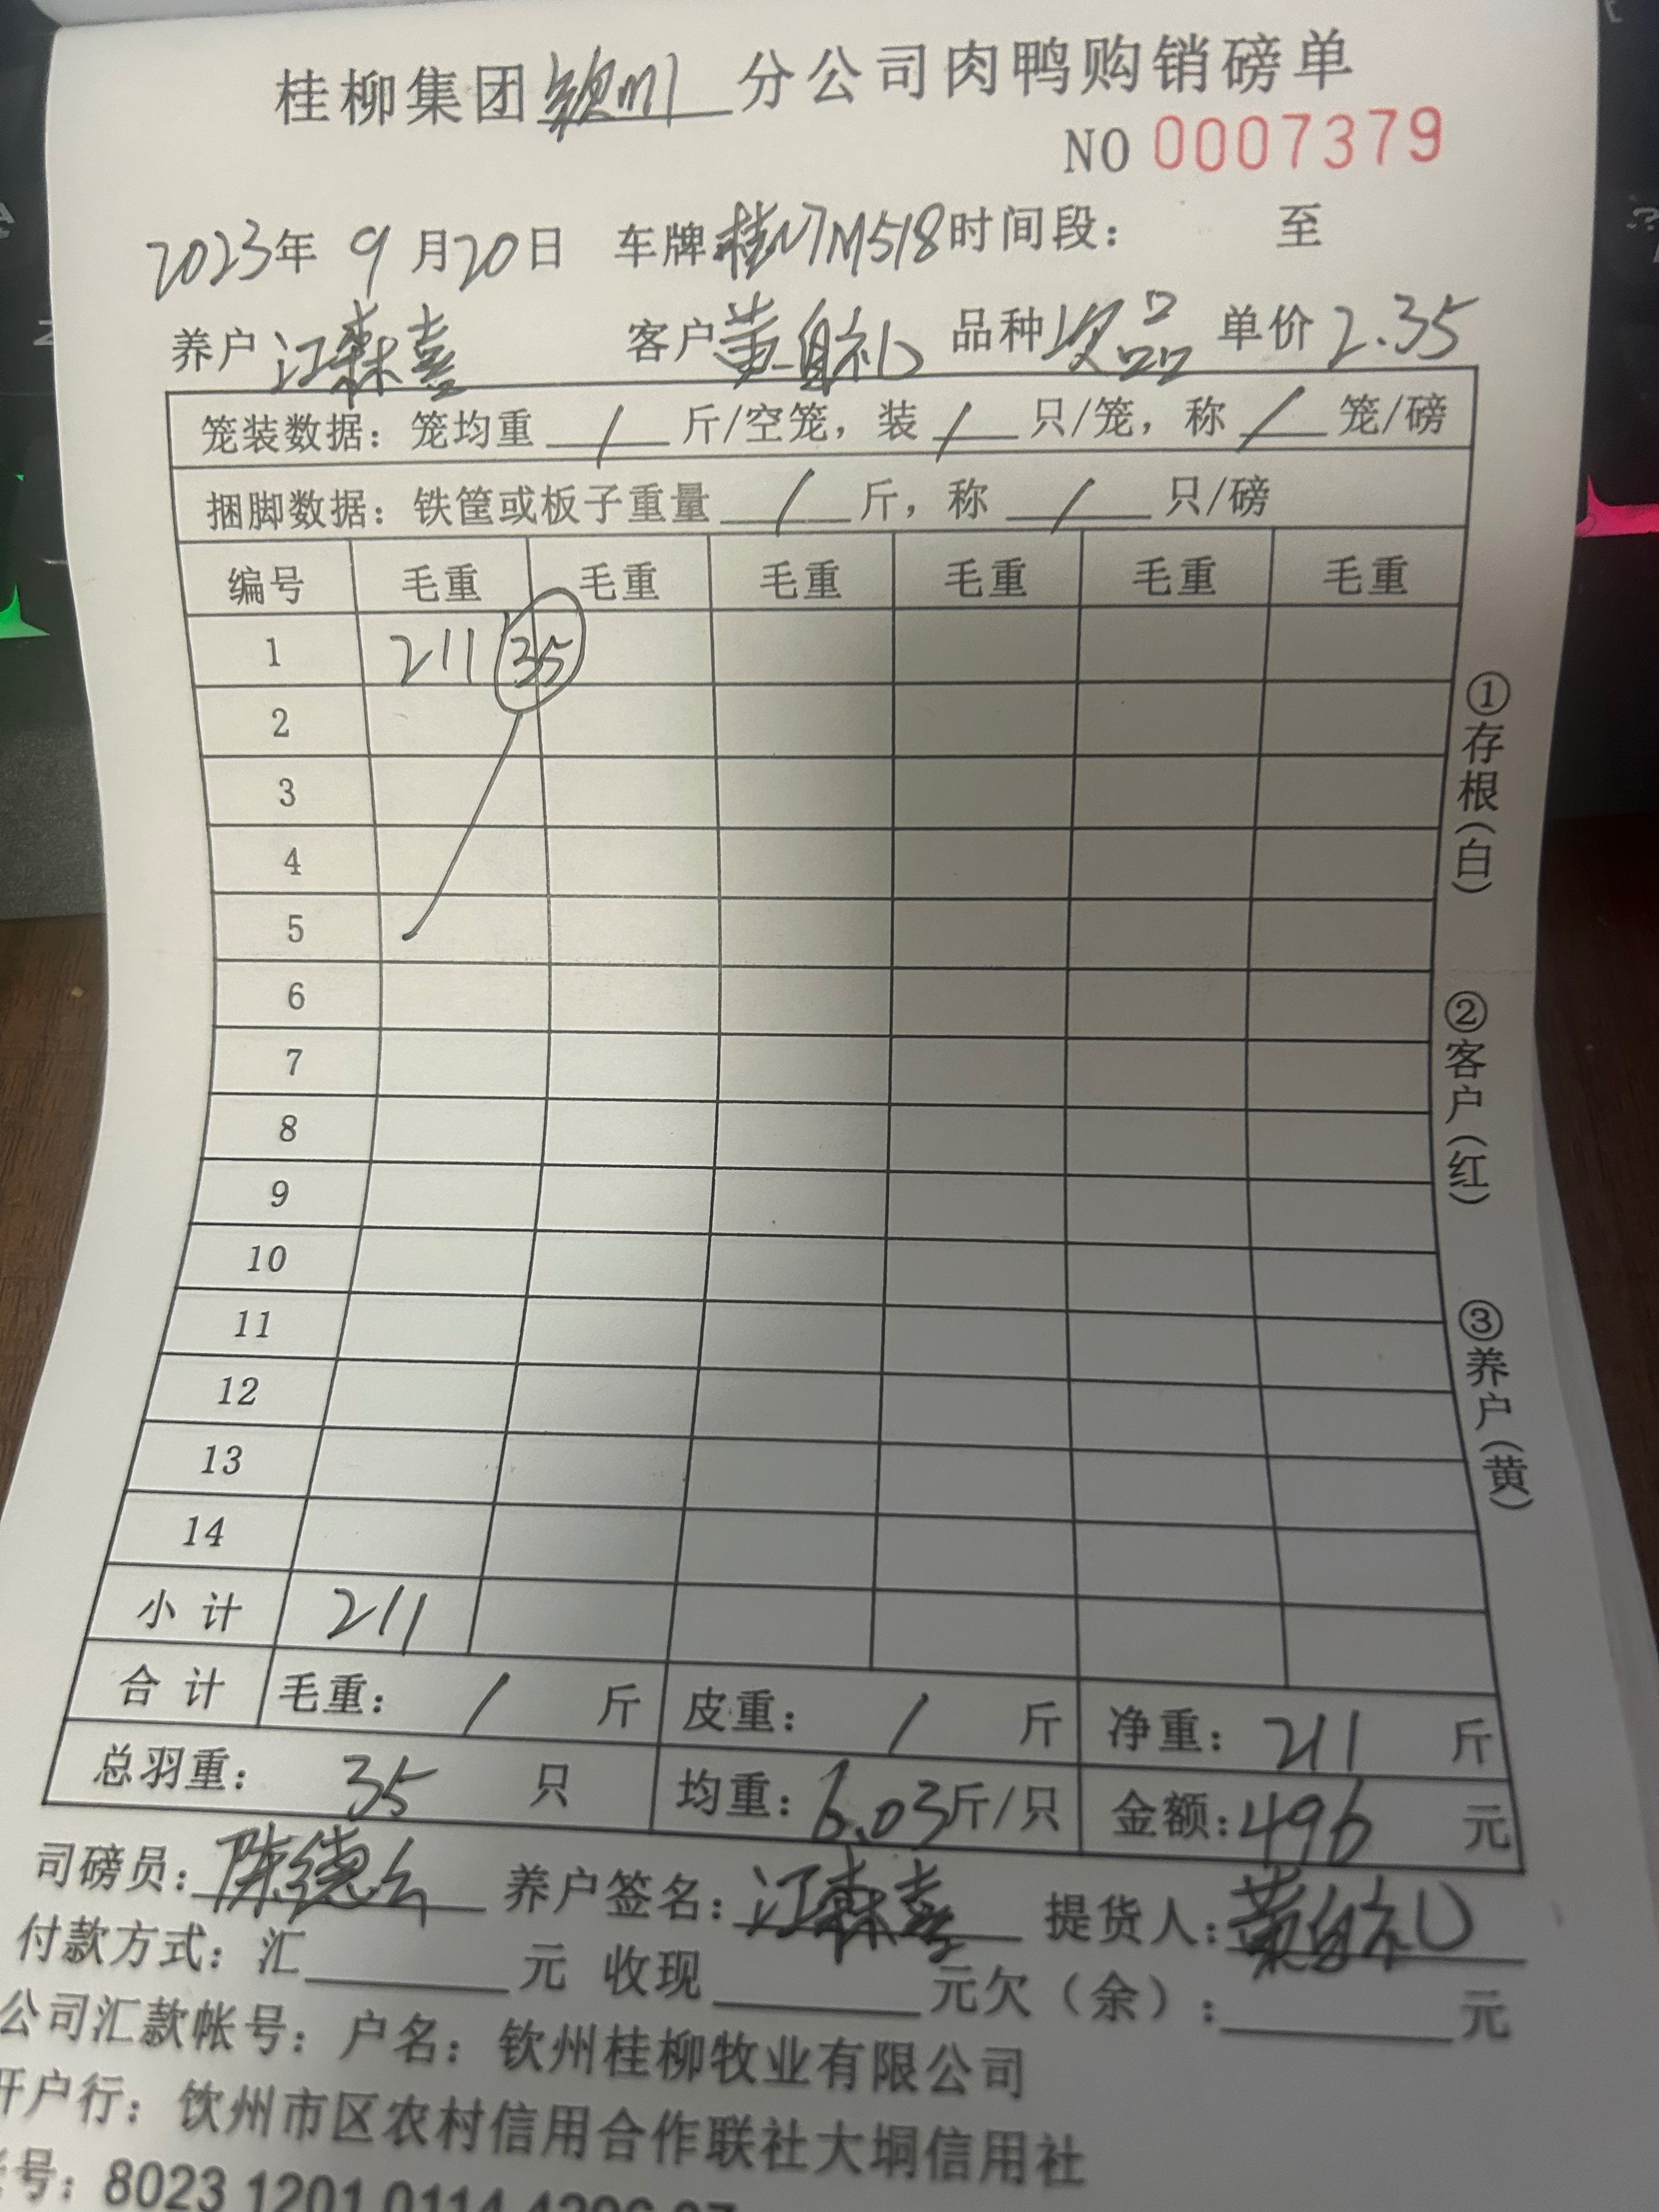 桂柳集团钦州分公司肉鸭购销磅单
NO 0007379
2023年 9月20日 车牌桂N7M518时间段： 至
养户江森喜 客户黄自礼 品种次品 单价2.35
笼装数据：笼均重 / 斤/空笼，装 / 只/笼，称 / 笼/磅
捆脚数据：铁筐或板子重量 / 斤，称 / 只/磅
编号 毛重 毛重 毛重 毛重 毛重 毛重
1 211 35
2
3
4
5
6
7
8
9
10
11
12
13
14
小计 211
合计 毛重： / 斤 皮重： / 斤 净重：211 斤
总羽重： 35 只 均重：6.03斤/只 金额：496 元
司磅员：陈德 养户签名：江森喜 提货人：黄自礼
付款方式：汇 元 收现 元欠（余）： 元
公司汇款帐号：户名：钦州桂柳牧业有限公司
开户行：钦州市区农村信用合作联社大垌信用社
号：8023 1201 0114
①存根（白）
②客户（红）
③养户（黄）